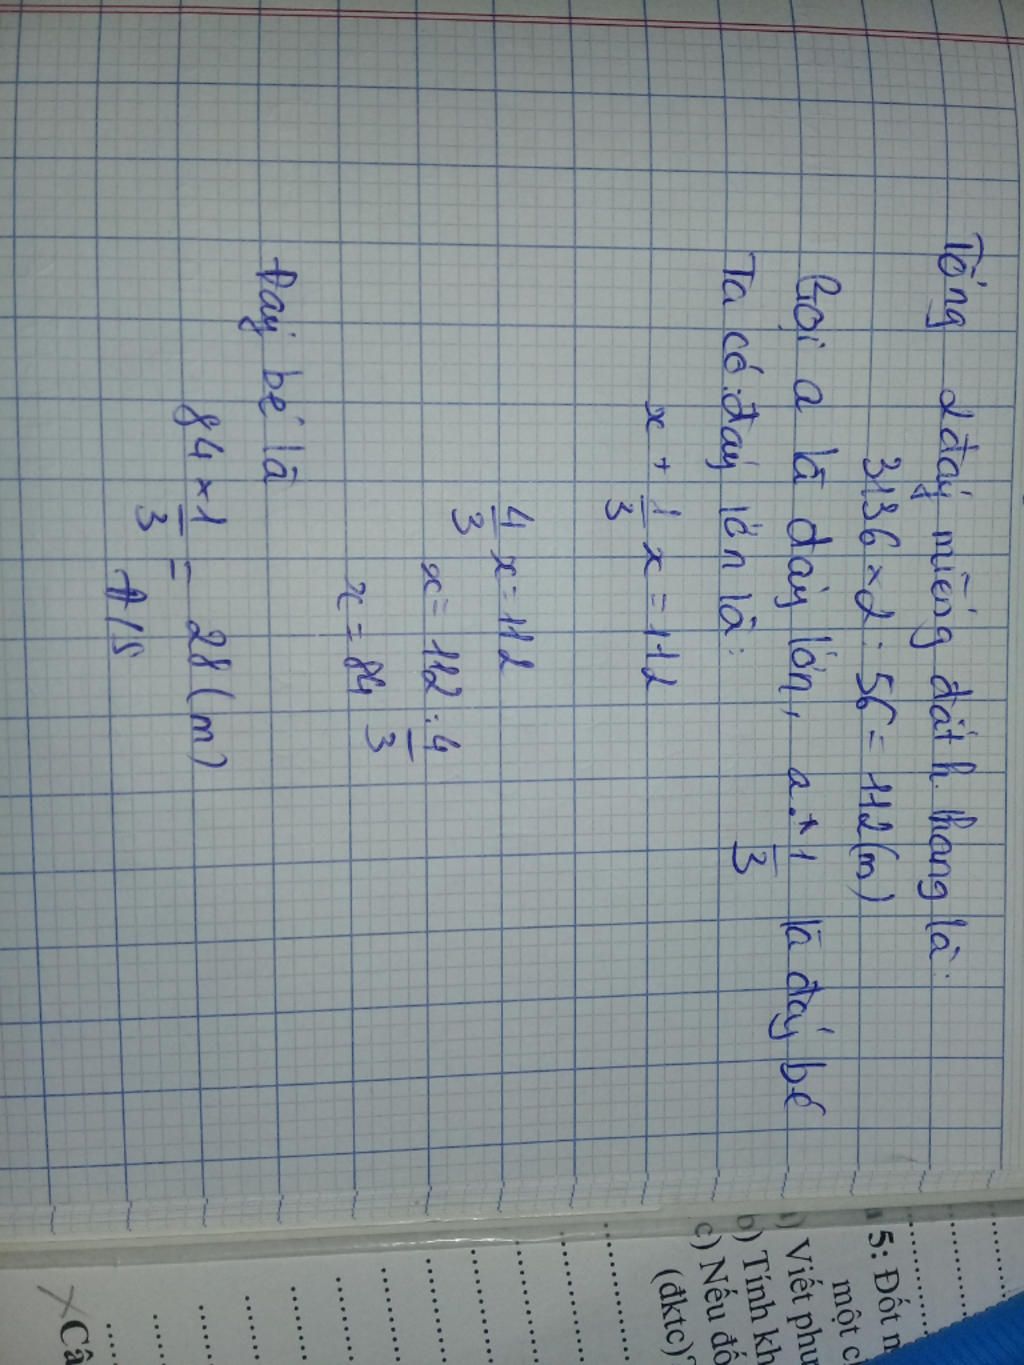 Tổng 2 đáy miếng đất h. thang là:
3136 × 2 : 56 = 112 (m)
Gọi a là đáy lớn, a . 1/3 là đáy bé
Ta có: đáy lớn là:
x + 1/3 x = 112
4/3 x = 112
x = 112 : 4/3
x = 84
Đáy bé là
84 × 1/3 = 28 (m)
Đ/S
5: Đốt
một
Viết phư
b) Tính kh
c) Nếu đố
(đktc)?
Câ